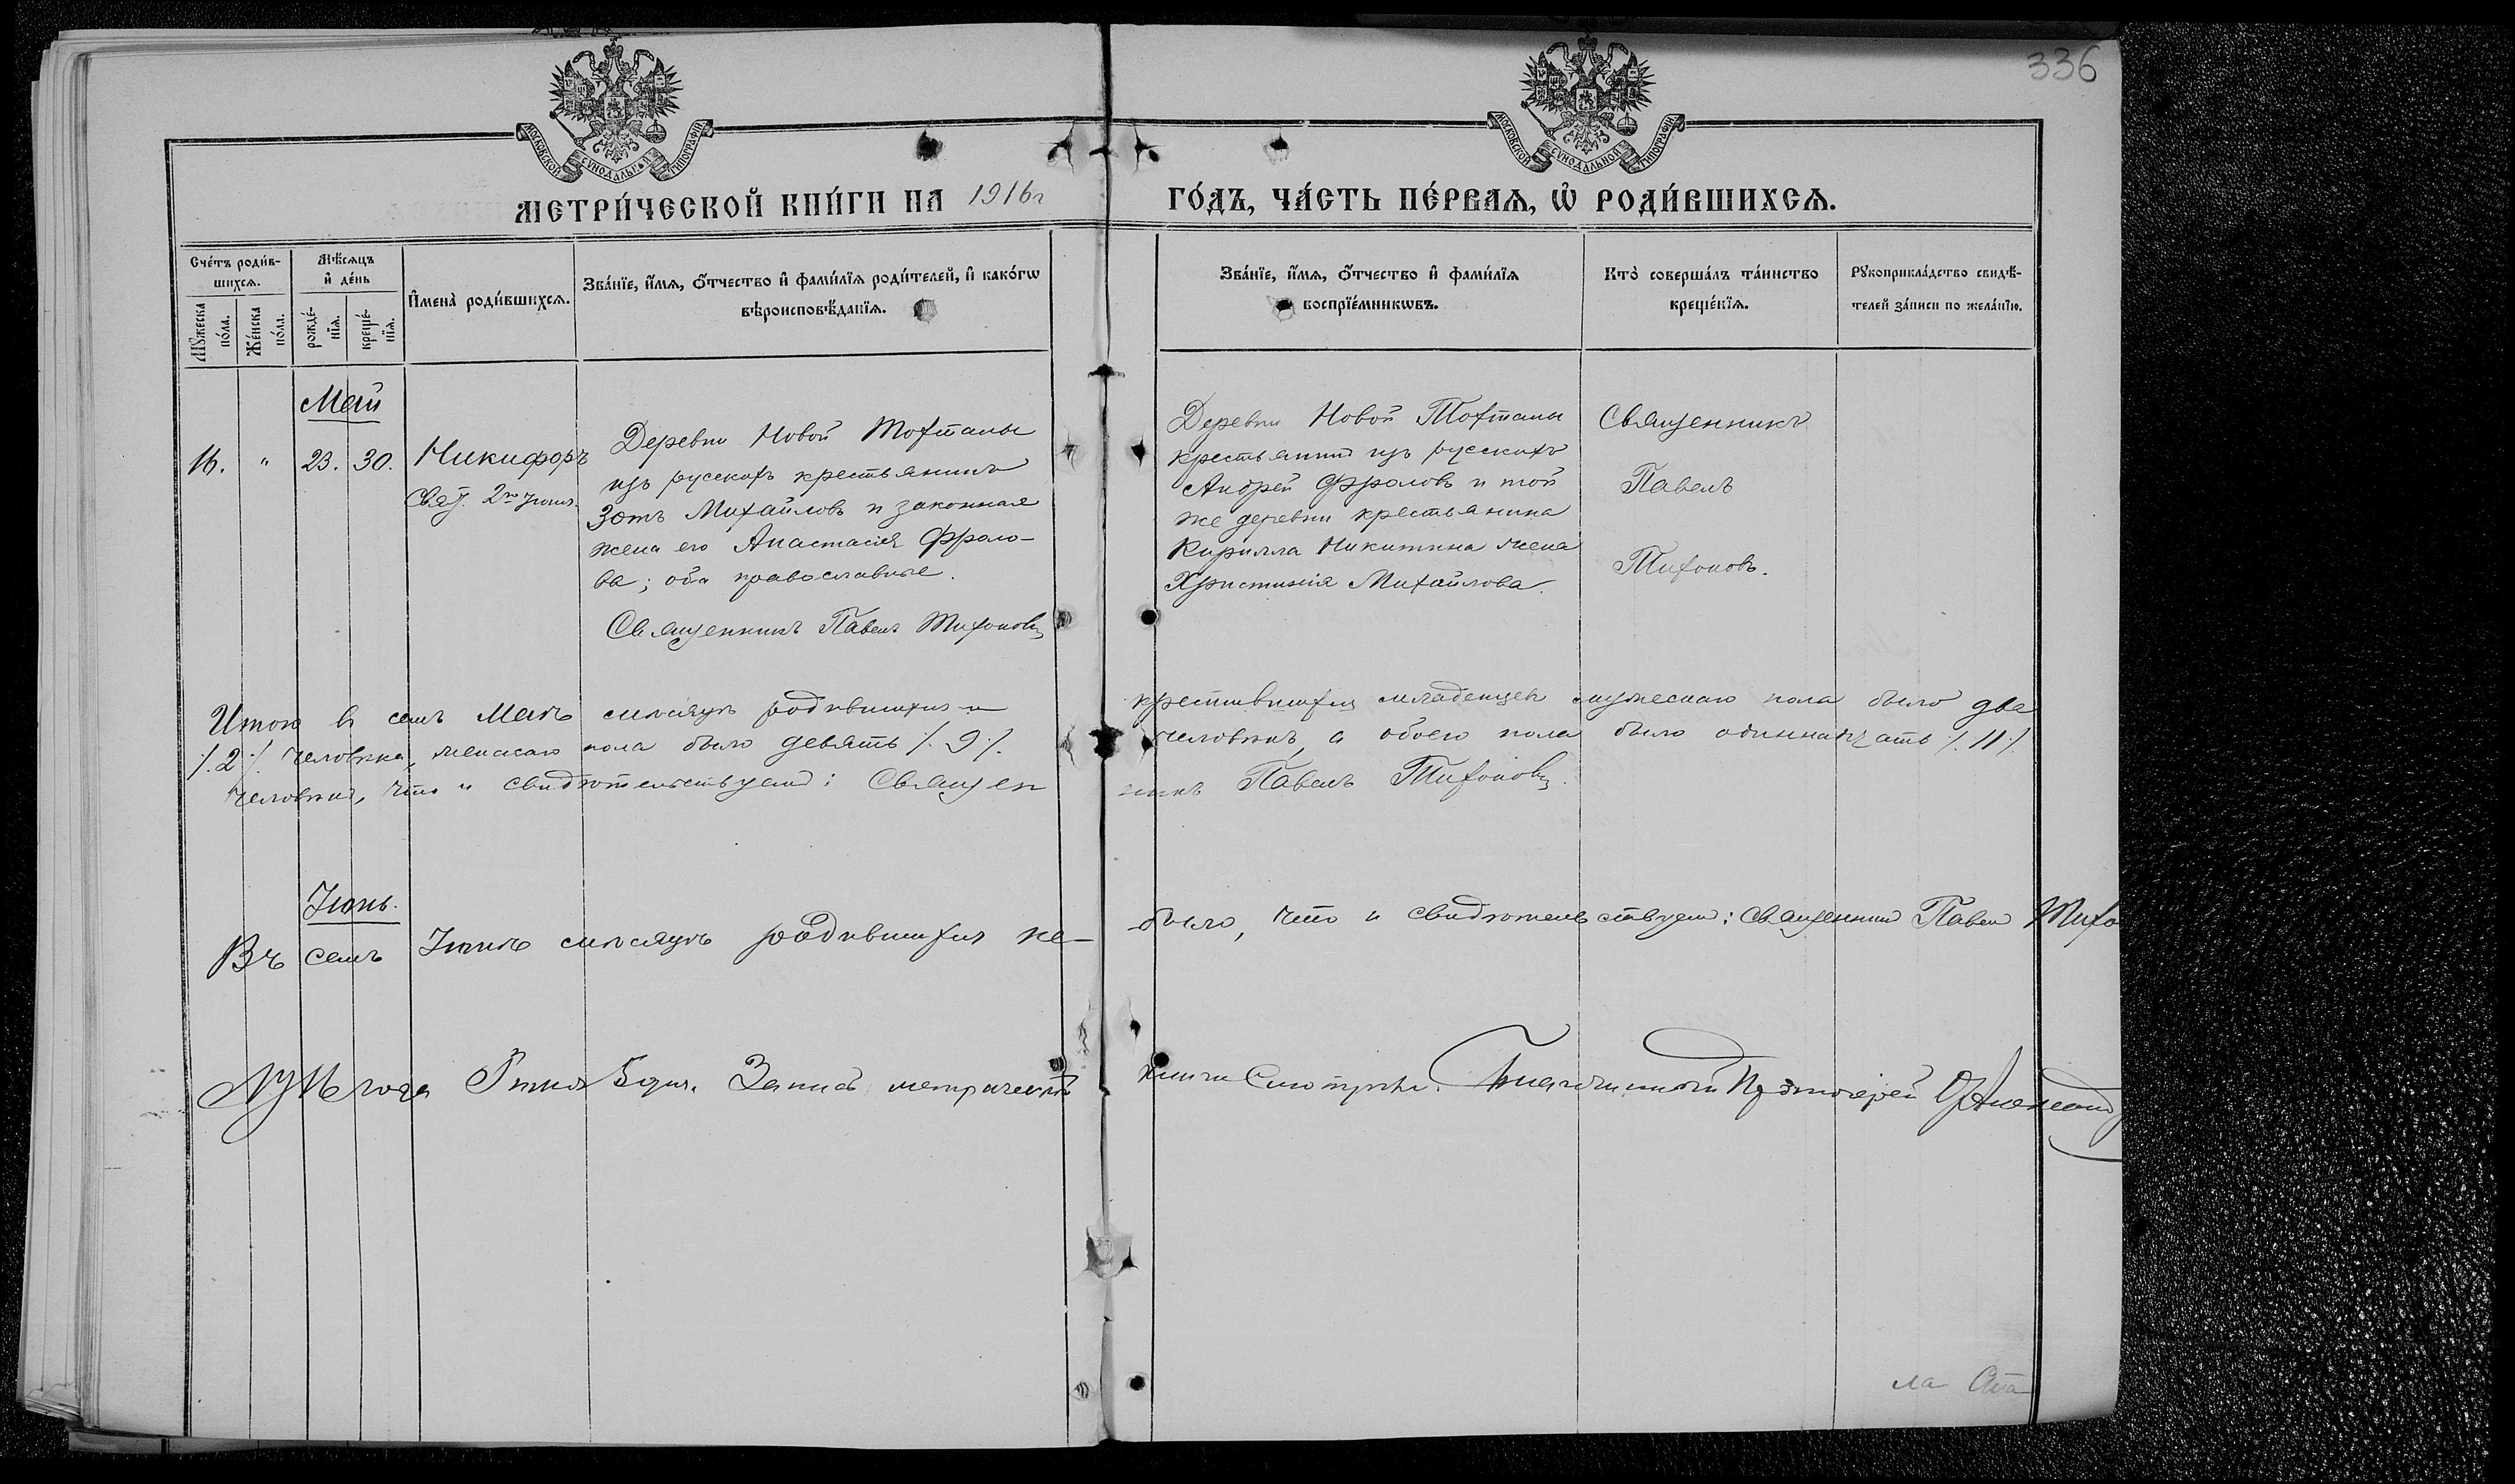 336
МОСКОВСКОЙ СѴНОДАЛЬНОЙ ТИПОГРАФІИ
МОСКОВСКОЙ СѴНОДАЛЬНОЙ ТИПОГРАФІИ
МЕТРИ́ЧЕСКОЙ КНИ́ГИ НА 1916 г
ГО́ДЪ, ЧА́СТЬ ПЕ́РВАѦ, Ѡ҆ РОДИ́ВШИХСѦ.
Сче́тъ роди́в-
шихсѧ.
Мꙋ́жеска по́ла.
Же́нска по́ла.
Мѣ́сѧцъ
и҆ де́нь
рожде́-
нїѧ.
креще́-
нїѧ.
И҆мена̀ роди́вшихсѧ.
Зва́нїе, и҆́мѧ, ѻ҆́тчество и҆ фами́лїѧ роди́телей, и҆ како́гѡ
вѣроисповѣ́данїѧ.
Зва́нїе, и҆́мѧ, ѻ҆́тчество и҆ фами́лїѧ
воспрїе́мникѡвъ.
Кто̀ соверша́лъ та́инство
креще́нїѧ.
Рꙋкоприкла́дство свидѣ́-
телей за́писи по жела́нїю.
Май
16. " 23. 30.
Никифоръ
Свят. 2го Іюня.
Деревни Новой Тохталы
изъ русскихъ крестьянинъ
Зотъ Михайловъ и законная
жена его Анастасія Фроло-
ва; оба православные.
Священникъ Павелъ Тихоновъ
Деревни Новой Тохталы
крестьянинъ изъ русскихъ
Андрей Фроловъ и той
же деревни крестьянина
Кирилла Никитина жена
Христинія Михайлова.
Священникъ
Павелъ
Тихоновъ.
Итого въ семъ Маѣ мѣсяцѣ родившихся и крестившихся младенцевъ мужескаго пола было два
/.2./ человѣка, женскаго пола было девять /.9./ человѣкъ, а обоего пола было одиннадцать /.11./
человѣкъ, что и свидѣтельствуемъ: Священникъ Павелъ Тихоновъ.
Іюнь.
Въ семъ Іюнѣ мѣсяцѣ родившихся не было, что и свидѣтельствуемъ: Священникъ Павелъ Тихо
года Іюня 5 дня. Запись метрической книги смотрѣлъ. Благочинный Протоіерей
ла